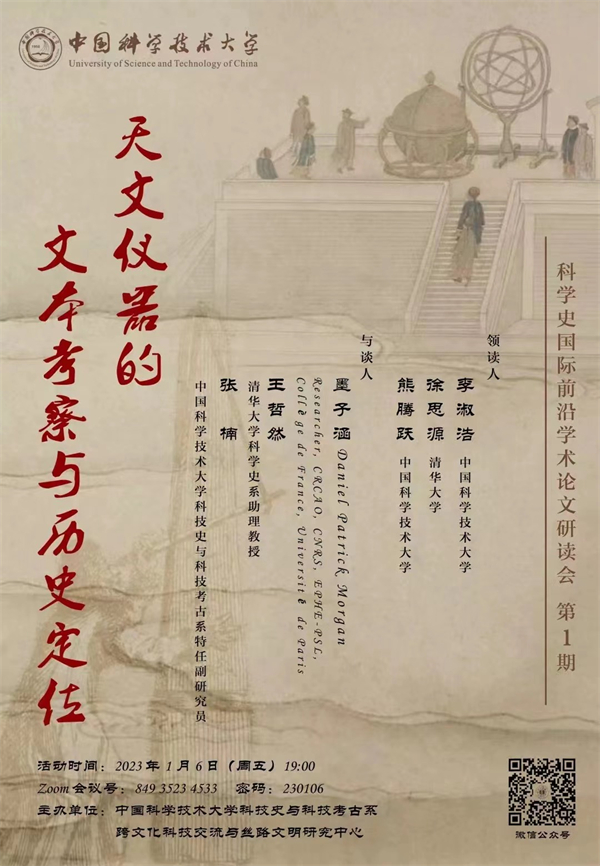 中国科学技术大学
University of Science and Technology of China
天文仪器的
文本考察与历史定位
科学史国际前沿学术论文研读会 第1期
领读人
李淑浩 中国科学技术大学
徐思源 清华大学
熊腾跃 中国科学技术大学
与谈人
墨子涵 Daniel Patrick Morgan
Researcher, CRCAO, CNRS, EPHE-PSL,
Collège de France, Université de Paris
王哲然
清华大学科学史系助理教授
张楠
中国科学技术大学科技史与科技考古系特任副研究员
活动时间：2023年1月6日（周五）19:00
Zoom会议号：849 3523 4533 密码：230106
主办单位：中国科学技术大学科技史与科技考古系
跨文化科技交流与丝路文明研究中心
微信公众号